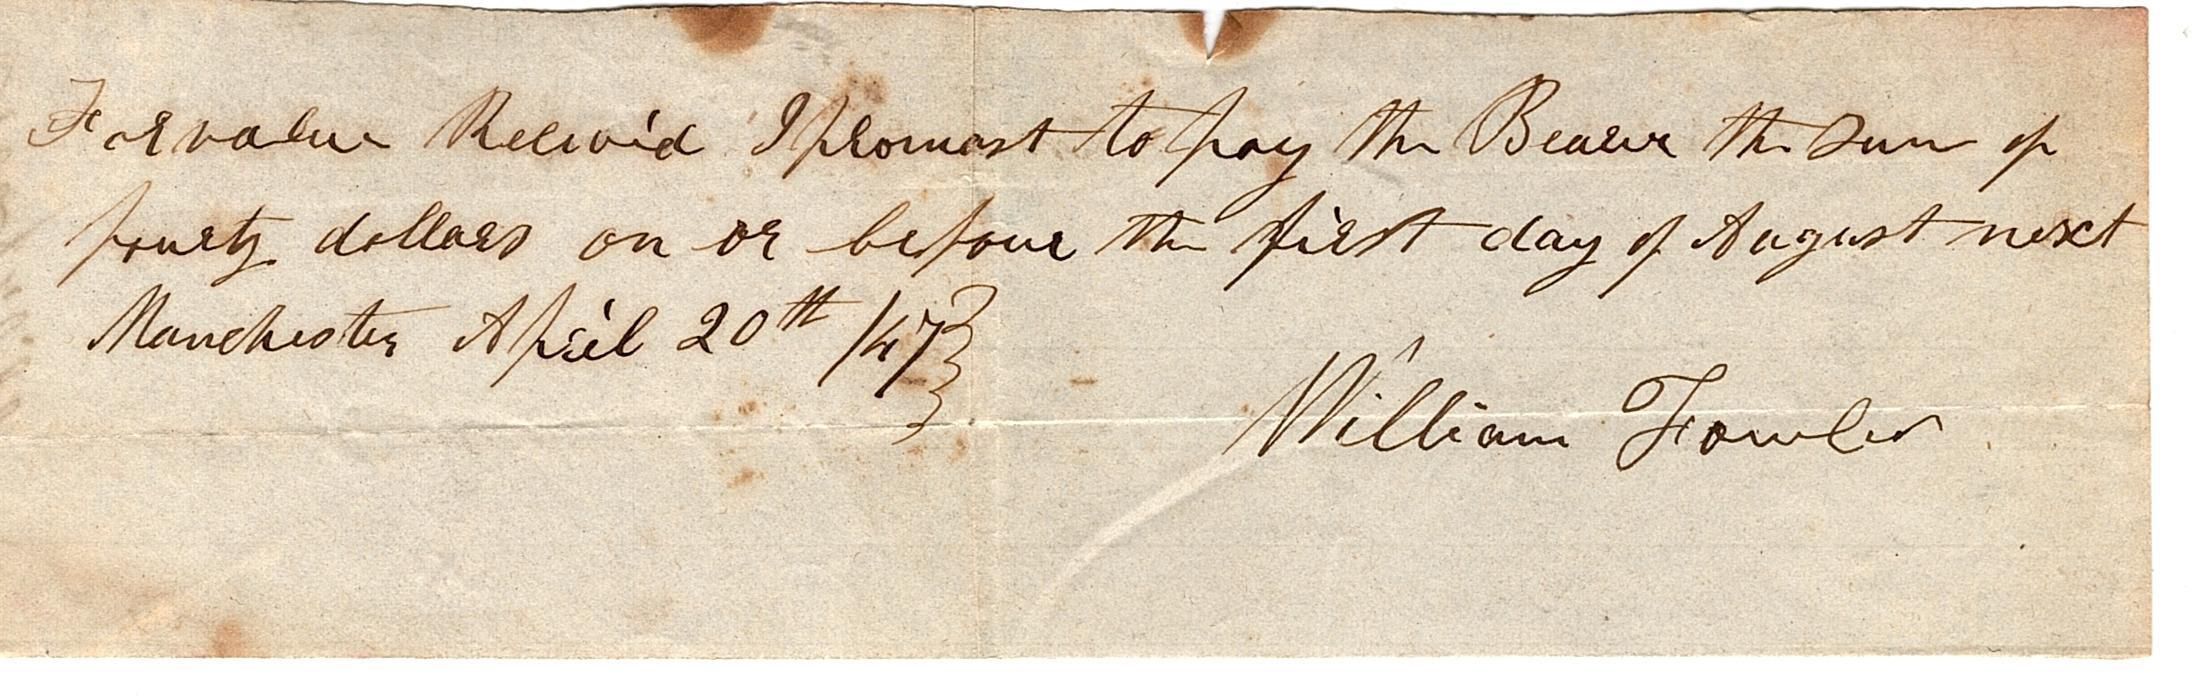 For value Receiv'd I promast to pay the Bearer the Sum of
fourty dollars on or before the first day of August next
Manchester April 20th /47
William Fowler